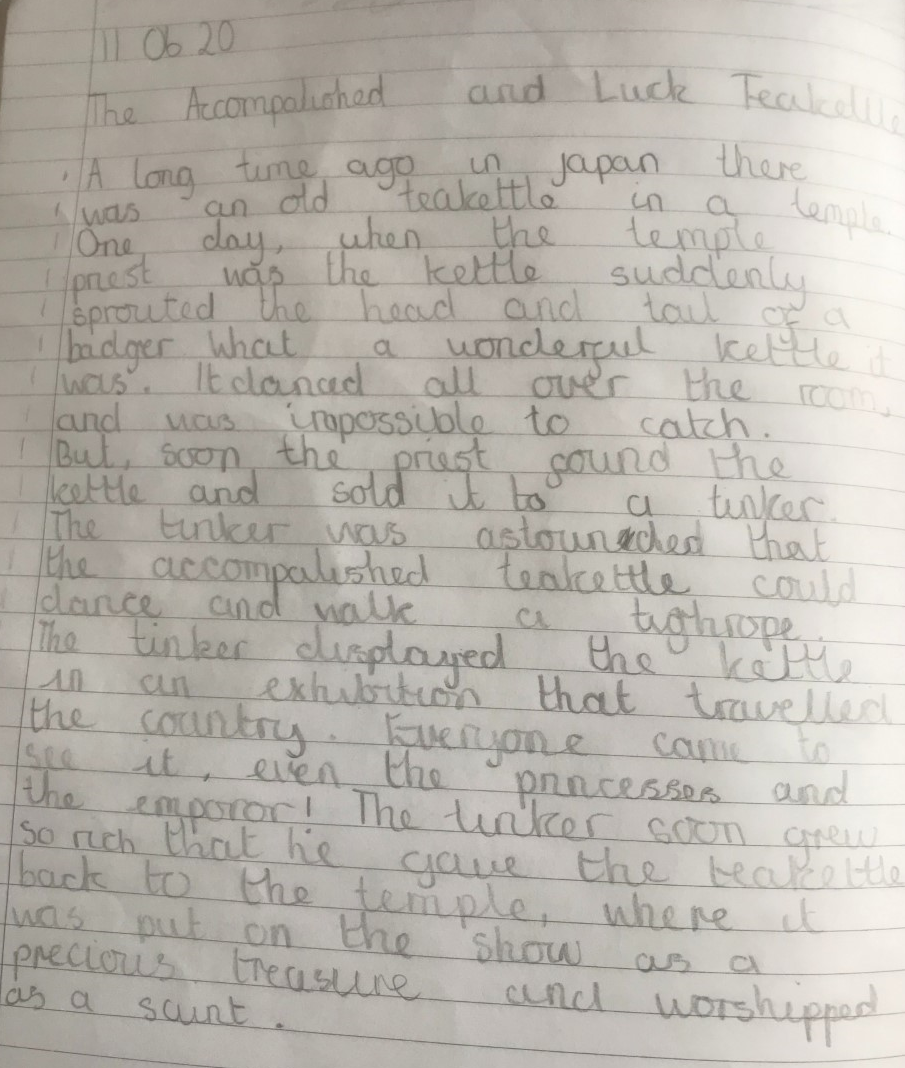 11 06 20
The Accompalished and Luck Teakettle
A long time ago in japan there
was an old teakettle in a temple.
One day, when the temple
priest was the kettle suddenly
sprouted the head and tail of a
badger what a wonderful kettle it
was. It danced all over the room,
and was impossible to catch.
But, soon the priest found the
kettle and sold it to a tinker.
The tinker was astounded that
the accompalished teakettle could
dance and walk a tighrope.
The tinker displayed the kettle
in an exhibition that travelled
the country. Everyone came to
see it, even the princesses and
the emporor! The tinker soon grew
so rich that he gave the teakettle
back to the temple, where it
was put on the show as a
precious treasure and worshipped
as a saint.